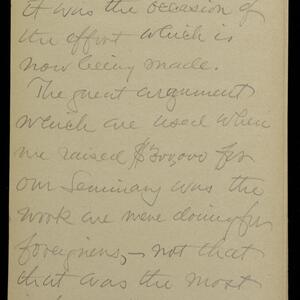 it was the occasion of
the effort which is
now being made.
The great argument
which are used when
we raised $300,000 for
our Seminary was the
work we were doing for
foreigners, — not that
that was the most